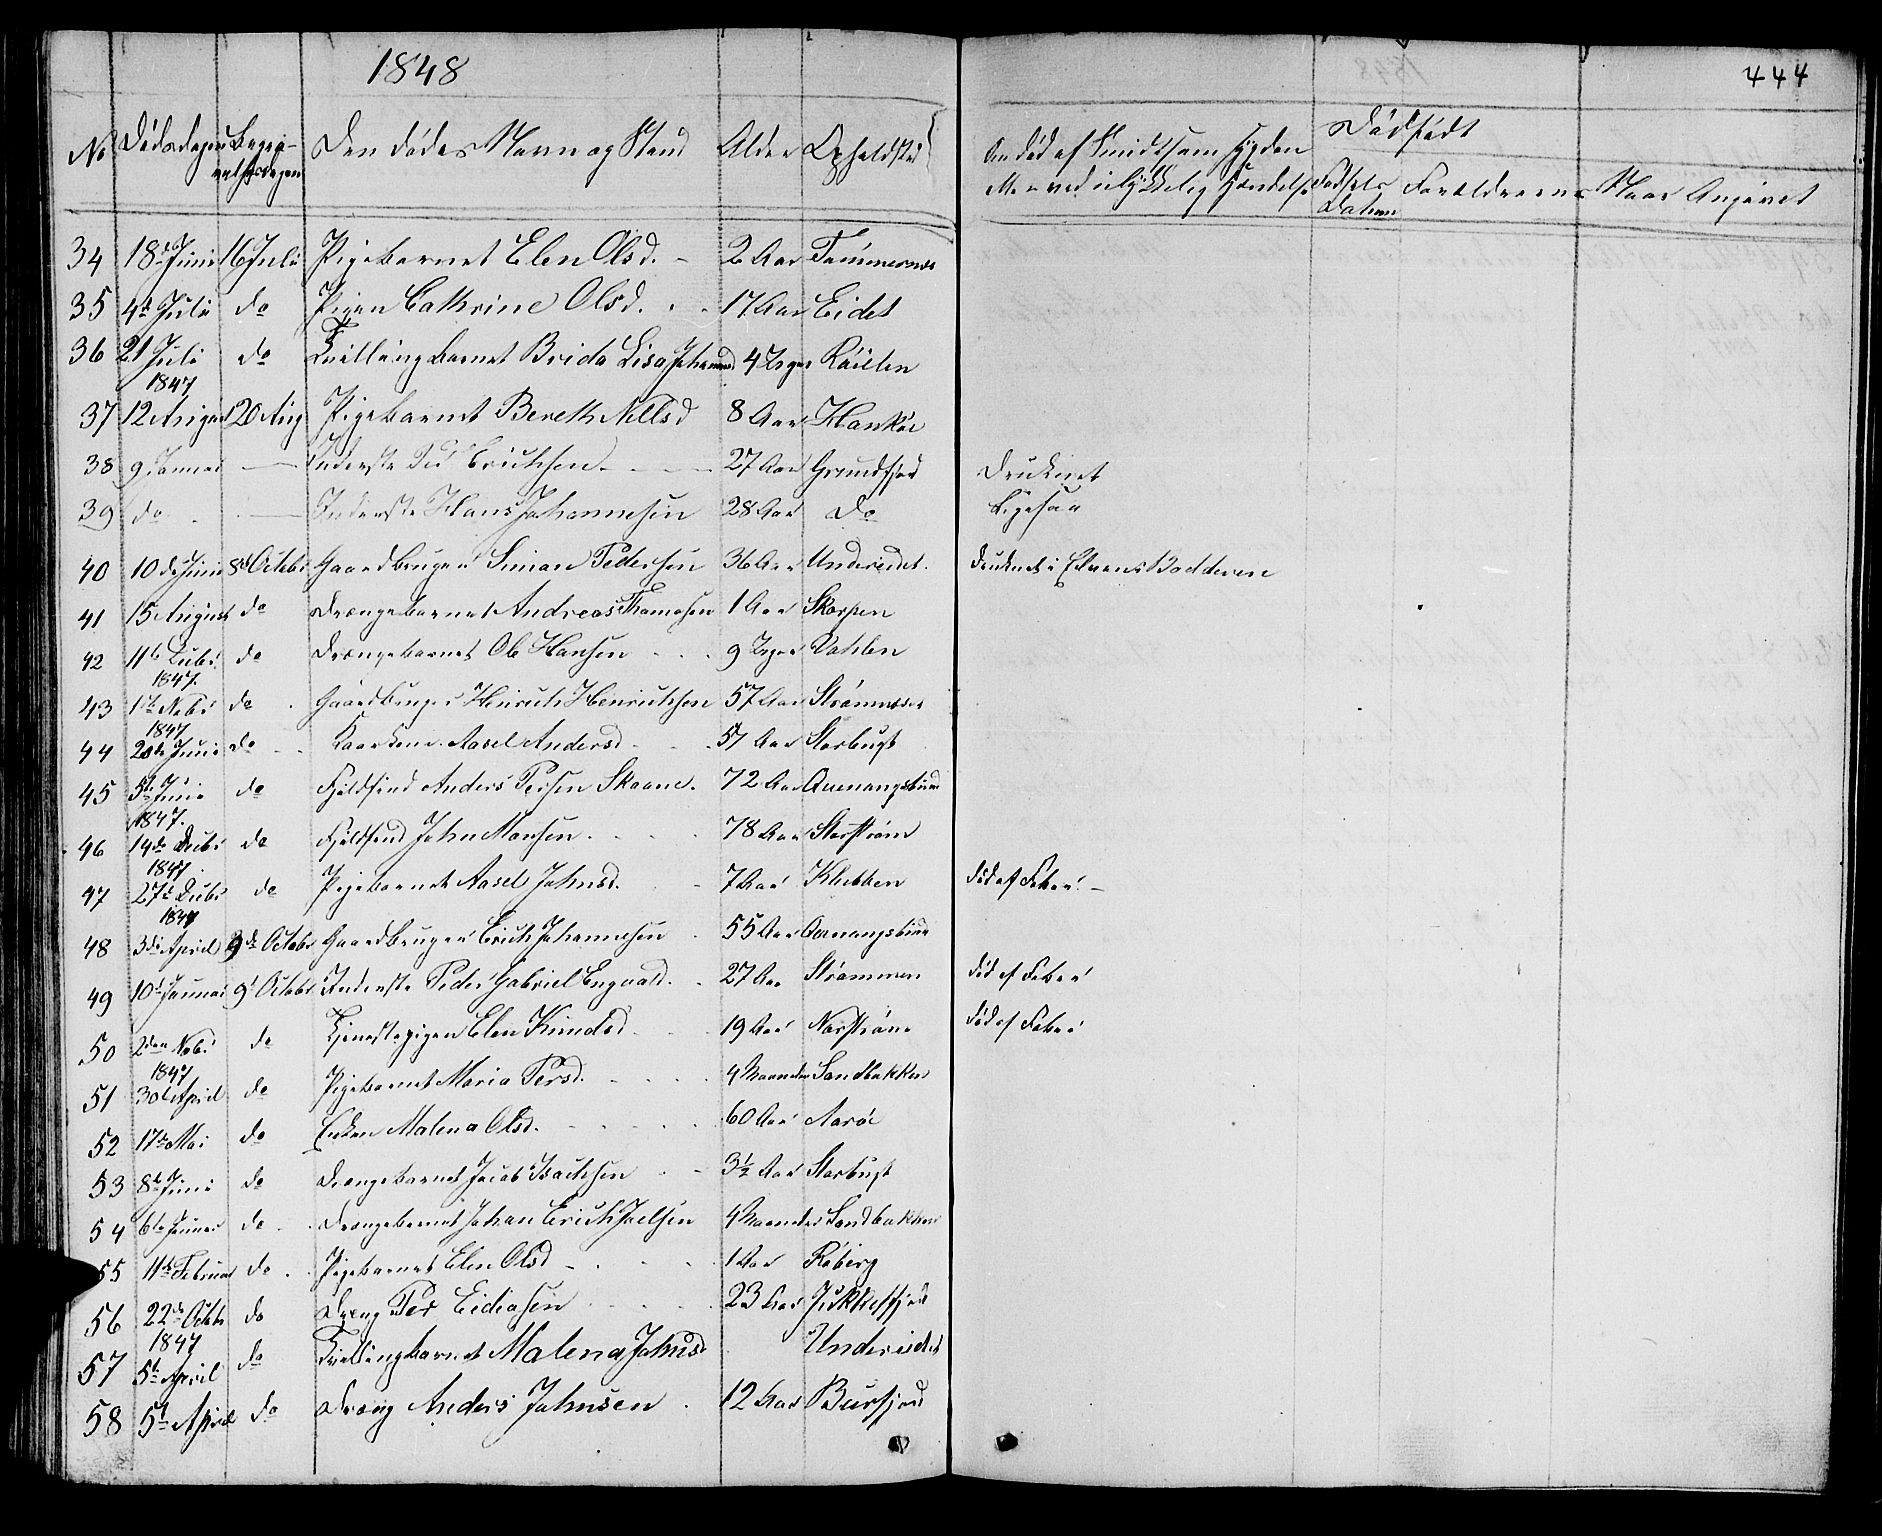 1848
444
No Dödsdagen Begra-velsesdagen Den dödes Navn og Stand Alder Opholdsted
Om död af smidtsom Sygdom eller ved ulykkelig Hændelse
Dödfödt
Födsels Datum Forældrerne Naar Angivet
34 18de Juni 16 Juli Pigebarnet Elen Olsd. - 2 Aar Tömmernes
35 4de Juli do Pigen Cathrine Olsd. 17 Aar Eidet
36 21 Juli do Tvillingbarnet Brida Lisa Johannesd 4 Uger
1847
37 12 August 20 Aug Pigebarnet Bereth Nillsd 8 Aar Hauköe
38 9 Januar — Inderste Erichsen 27 Aar Grundfjord Druknet
39 do — Inderste Hans Johannesen 28 Aar do Ligesaa
40 10de Juni 8de Octobr Gaardbruger Simon Pedersen 36 Aar Undereidet. Druknet i Elvens
41 15 August do Drengebarnet Andreas Thomasen 1 Aar Skorpen
42 11te do Drengebarnet Ole Hansen 9 Uger Vahlen
1847.
43 1te Nobr do Gaardbruger Hinrich Henrichsen 57 Aar
1847
44 20de Juni do Kaarkone Aasel Andersd 57 Aar Storbugt
45 5te Juni do Fjeldfind Anders Persen Skaane. 72 Aar Qvenangsbund
1847.
46 14de Decbr do Fjeldfind John Monsen 78 Aar Storström
1847.
47 27de Decbr do Pigebarnet Aasel Johnsd. 7 Aar Klubben död af Feber. -
1847
48 3de April 9de Octobr Gaardbruger Erich Johannesen 55 Aar Qvenangsbund
49 10de Januar 9de Octobr Inderste Peder Gabriel Engvald. 27 Aar Strömmen död af Feber
50 2den Nobr do Tjenestepigen Elen Knudsd 19 Aar död af Feber
1847
51 30te April do Pigebarnet Maria Persd. 4 Maaneder Sandbakken
52 17de Mai do Enken Malena Olsd. 60 Aar Aaröe
53 8de Juni do Drengebarnet Jacob Isachsen 3½ Aar Storbugt
54 6te Januar do Drengebarnet Johan Erich Joelsen 4 Maaneder Sandbakken
55 11te Februar do Pigebarnet Elen Olsd 1 Aar Röberg
56 22de Octbr do Dreng Per Eidiasen 23 Aar Jökkelfjord
1847
57 5te April do Tvillingbarnet Malena Johnsd Undereidet
58 5te April do Dreng Anders Johnsen 12 Aar Burfjord